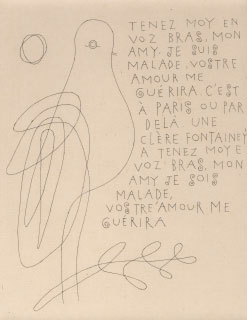 TENEZ MOY EN
VOZ BRAS, MON
AMY, JE SUIS
MALADE. VOSTRE
AMOUR ME
GUÉRIRA. C'EST
À PARIS OU PAR
DELÀ UNE
CLÈRE FONTAINE
A TENEZ MOY E
VOZ BRAS, MON
AMY JE SOIS
MALADE,
VOSTRE AMOUR ME
GUÉRIRA